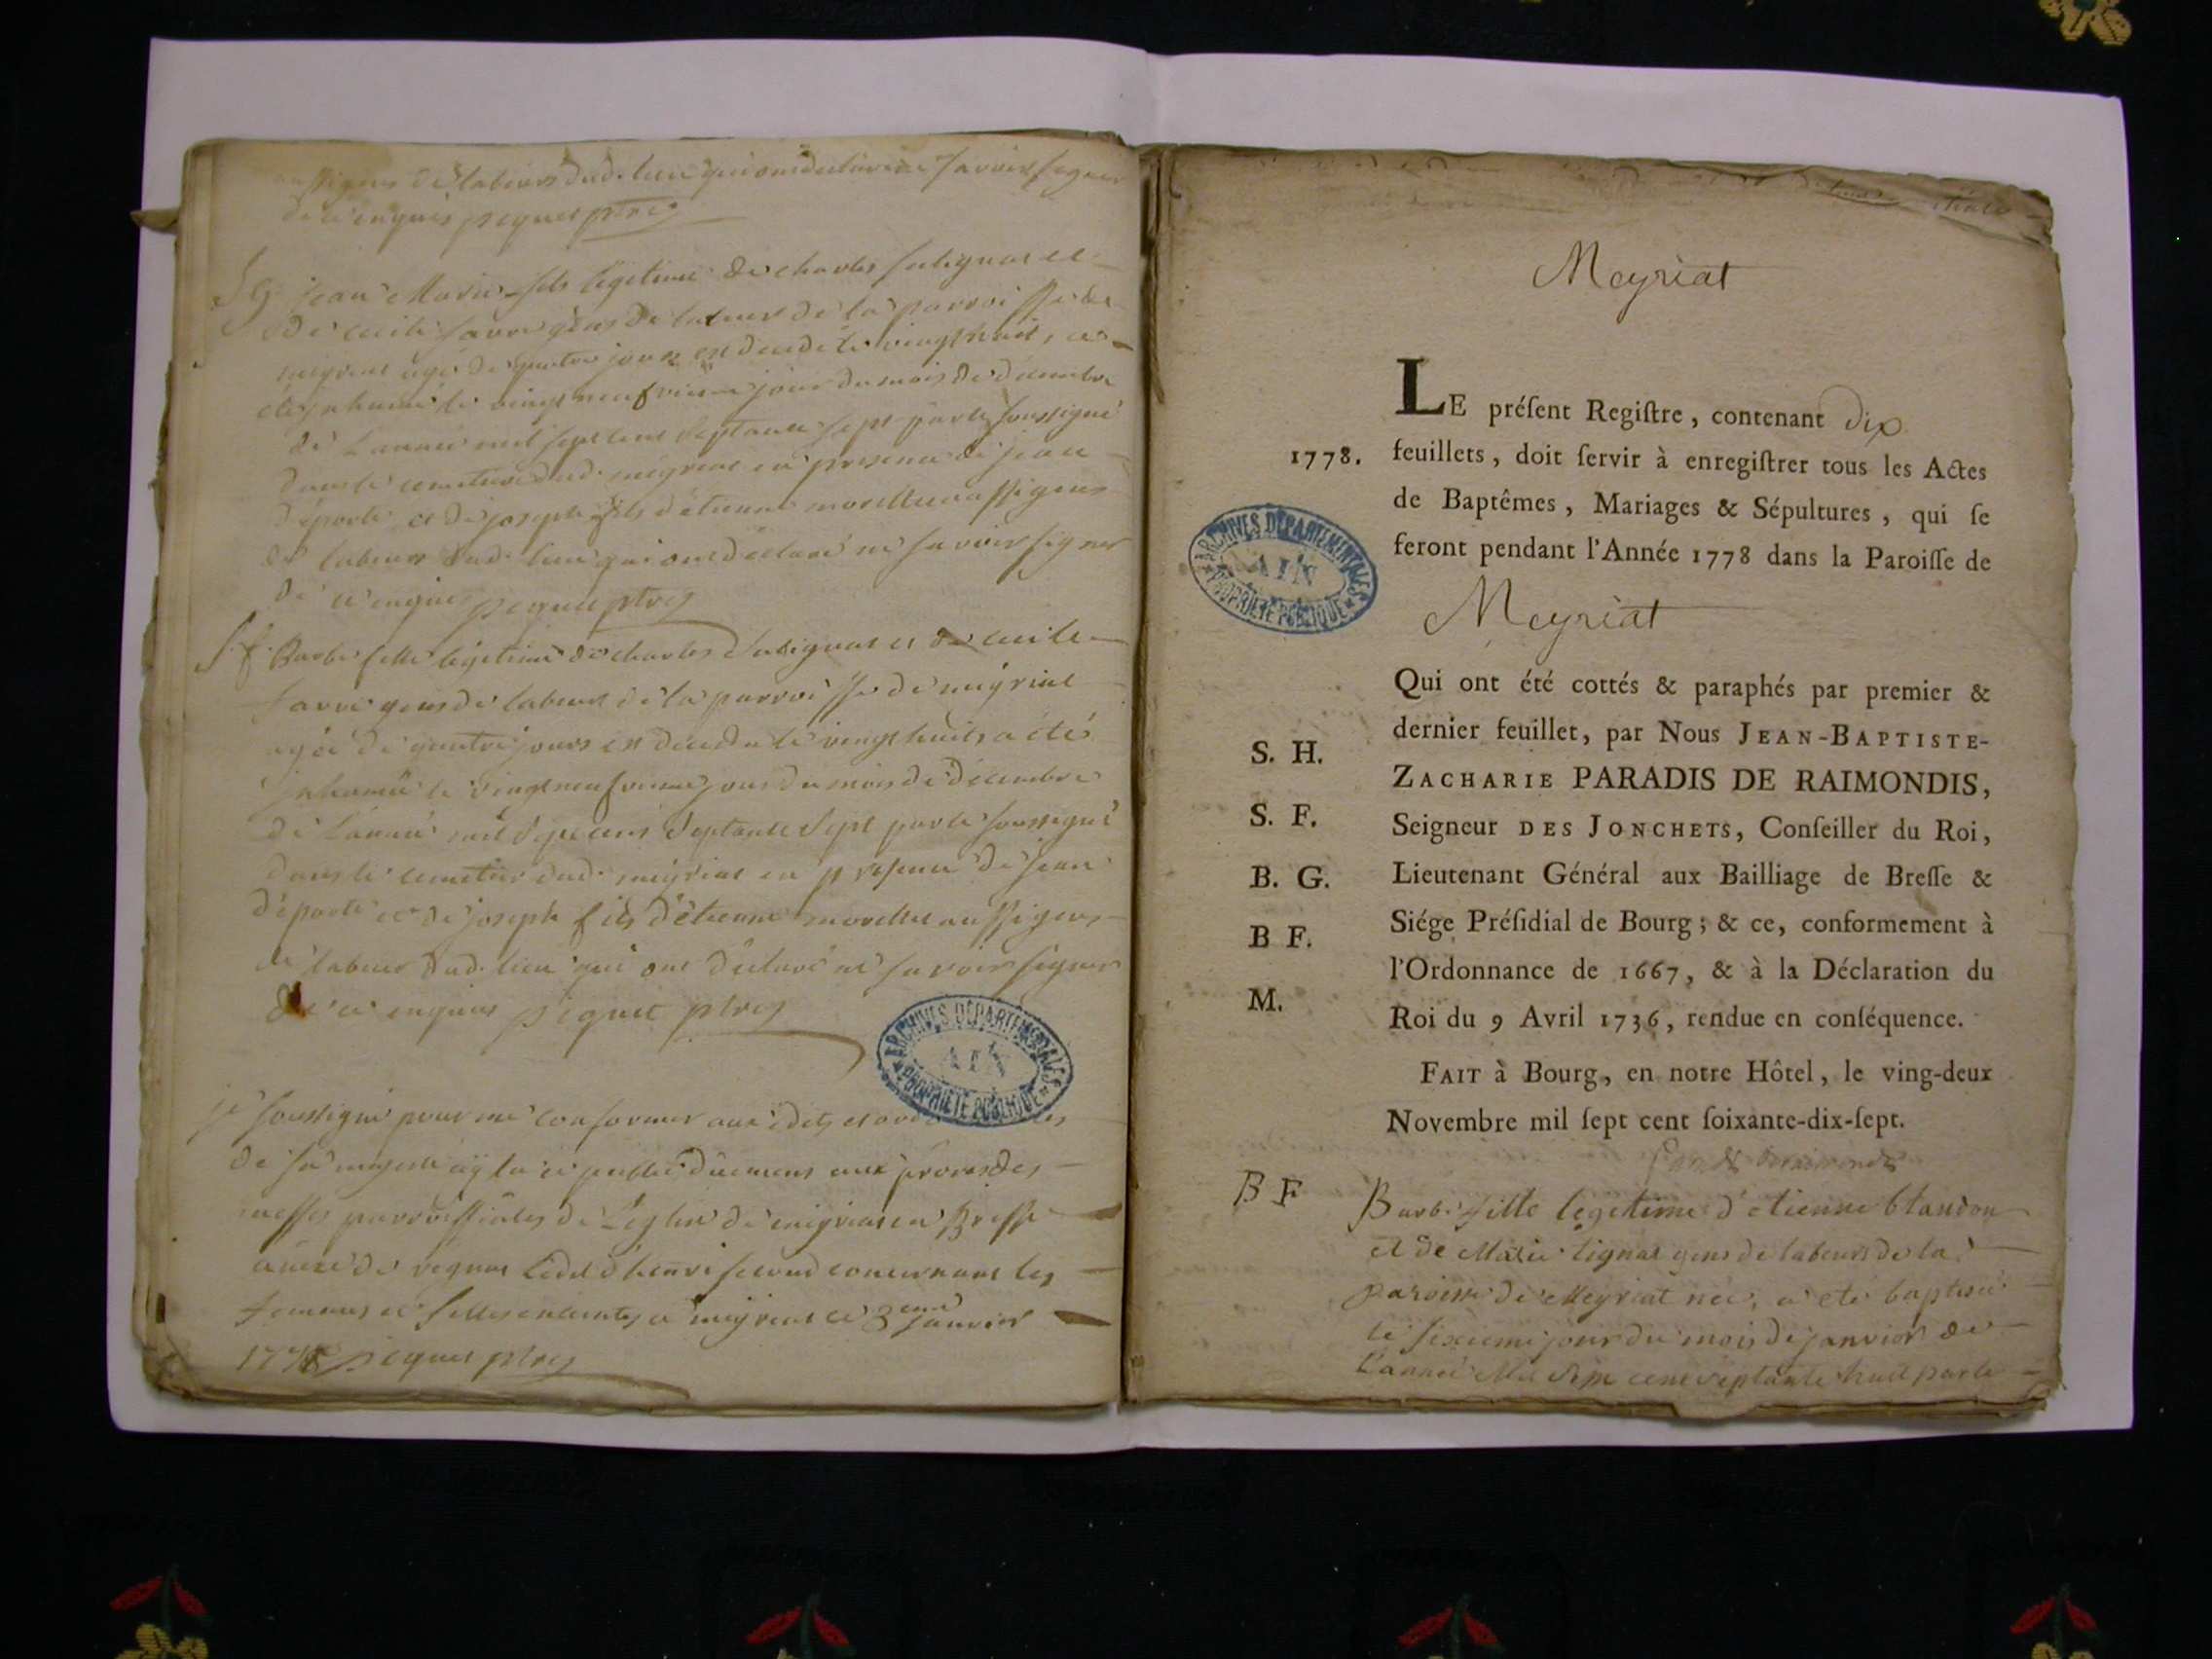 aussi gens de labeurs dud. lieu qui ont déclaré ne savoir signer
de ce enquis piquet ptre
S G jean Marie fils légitime de charles salignat et
de cecile favre gens de labeur de la parroisse de
meyriat agé de quatre jours est decedé le vingt huit, a
été inhumé le vingt neufvieme jour du mois de decembre
de l'année mil sept cent septante sept par le soussigné
dans le cemetiere dud. meyriat en presence de jean
déporte et de joseph fils d'étienne morellet aussi gens
de labeur dud. lieu qui ont déclaré ne savoir signer
de ce enquis piquet ptre
S. f. Barbe fille légitime de charles salignat et de cecile
favre gens de labeur de la parroisse de meyriat
agée de quatre jours est décédée le vingt huit, a été
inhumée le vingt neufvieme jour du mois de décembre
de l'année mil sept cent septante sept par le soussigné
dans le cemetier dud. meyriat en presence de jean
déporte et de joseph fils d'étienne morellet aussi gens
de labeur dud. lieu qui ont déclaré ne savoir signer
de ce enquis piquet ptre
ARCHIVES DÉPARTEMENTALES
AIN
PROPRIÉTÉ PUBLIQUE
je soussigné pour me conformer aux édits et
de sa majesté ay lu et publié duement aux prônes des
messes parroissiales de l'église de meyriat en Bresse
l'édit d'henri second concernant les
femmes et filles enceintes a meyriat ce 3eme janvier
1778 piquet ptre
Meyriat
LE préſent Regiſtre, contenant dix
1778. feuillets, doit ſervir à enregiſtrer tous les Actes
de Baptêmes, Mariages & Sépultures, qui ſe
feront pendant l'Année 1778 dans la Paroiſſe de
ARCHIVES DÉPARTEMENTALES
AIN
PROPRIÉTÉ PUBLIQUE
Meyriat
Qui ont été cottés & paraphés par premier &
dernier feuillet, par Nous JEAN-BAPTISTE-
S. H. ZACHARIE PARADIS DE RAIMONDIS,
S. F. Seigneur DES JONCHETS, Conſeiller du Roi,
B. G. Lieutenant Général aux Bailliage de Breſſe &
B F. Siége Préſidial de Bourg; & ce, conformement à
l'Ordonnance de 1667, & à la Déclaration du
M. Roi du 9 Avril 1736, rendue en conſéquence.
FAIT à Bourg, en notre Hôtel, le ving-deux
Novembre mil ſept cent ſoixante-dix-ſept.
Paradis deraimondis
B F Barbe fille légetime d'etienne blandon
et de Marie tignat gens de labeurs de la
paroisse de Meyriat née, a eté baptisée
le sixieme jour du mois de janvier de
l'année Mil sept cent septante huit par le